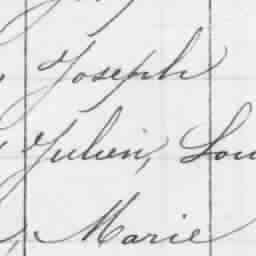 Joseph
Julien, Lou
Marie